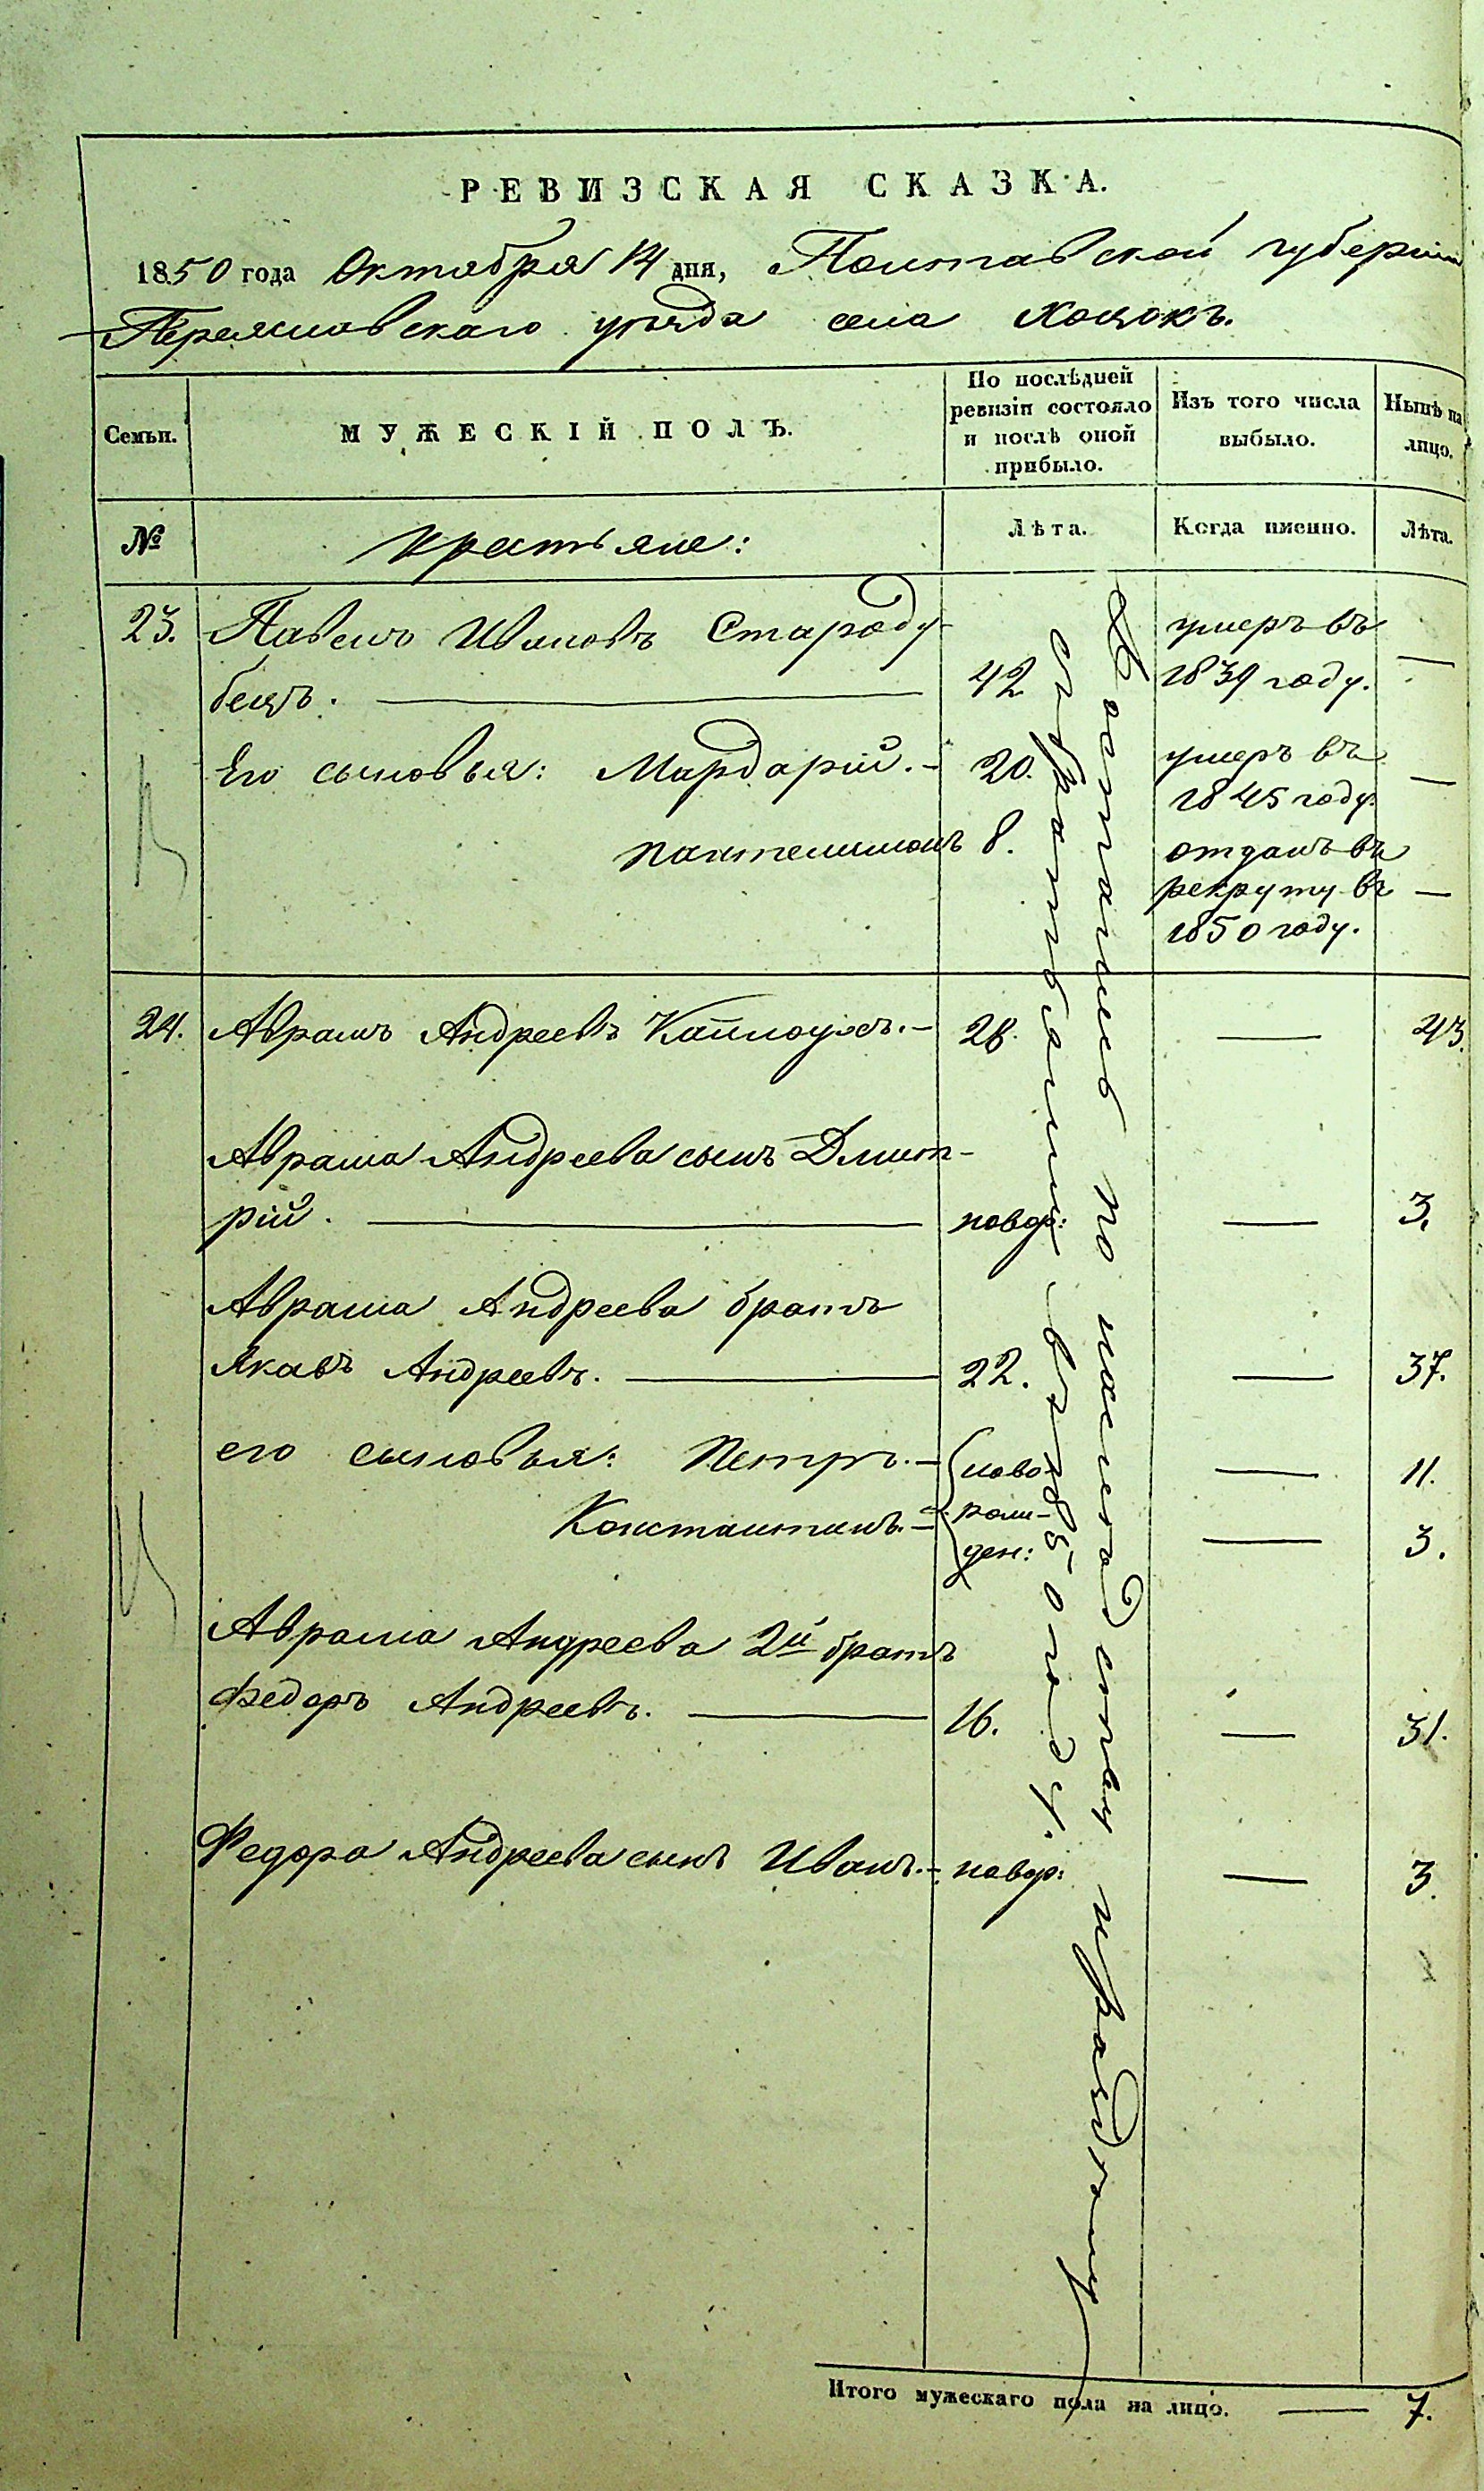 РЕВИЗСКАЯ СКАЗКА.
1850 года Октября 14 дня, Полтавской губерніи
Переяславскаго уѣзда села Хоцокъ.
Семьи.
МУЖЕСКІЙ ПОЛЪ.
По послѣдней
ревизіи состояло
и послѣ оной
прибыло.
Изъ того числа
выбыло.
Нынѣ на
лицо.
№
крестьяне:
Лѣта.
Когда именно.
Лѣта.
23. Павелъ Ивановъ Староду-
умеръ въ
бецъ. — 42 1839 году. —
Его сыновья: Мардарій. - 20. умеръ въ
1845 году. —
Пантелимонъ 8. отданъ въ
рекруты въ —
1850 году.
24. Аврамъ Андреевъ - 28. — 43.
Аврама Андреева сынъ Дмит-
рій. — новор: — 3.
Аврама Андреева братъ
Яковъ Андреевъ. — 22. — 37.
его сыновья: Петръ. - ново- — 11.
Константинъ. - рож- — 3.
ден:
Аврама Андреева 2й братъ
Федоръ Андреевъ. — 16. — 31.
Федора Андреева сынъ Иванъ. - новор: — 3.
Достались по наслѣдству
въ 1850 году.
Итого мужескаго пола на лицо. — 7.